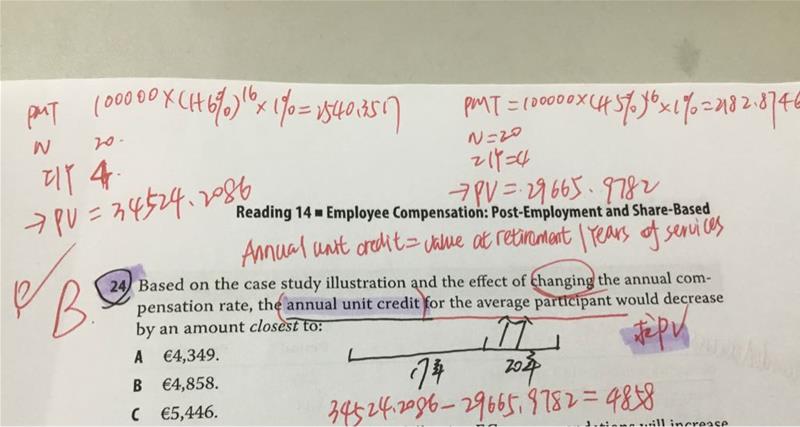 PMT 100000×(1+6%)^16×1%=2540.3517
N 20.
I/Y 4
→PV=34524.2086
PMT=100000×(1+5%)^16×1%=2182.8746
N=20
I/Y=4
→PV=29665.9782
Reading 14 ■ Employee Compensation: Post-Employment and Share-Based
Annual unit credit=value at retirement/Years of services
B.
24 Based on the case study illustration and the effect of changing the annual com-
pensation rate, the annual unit credit for the average participant would decrease
by an amount closest to:
求PV
A €4,349.
17年 20年
B €4,858.
34524.2086-29665.9782=4858
C €5,446.
will increase